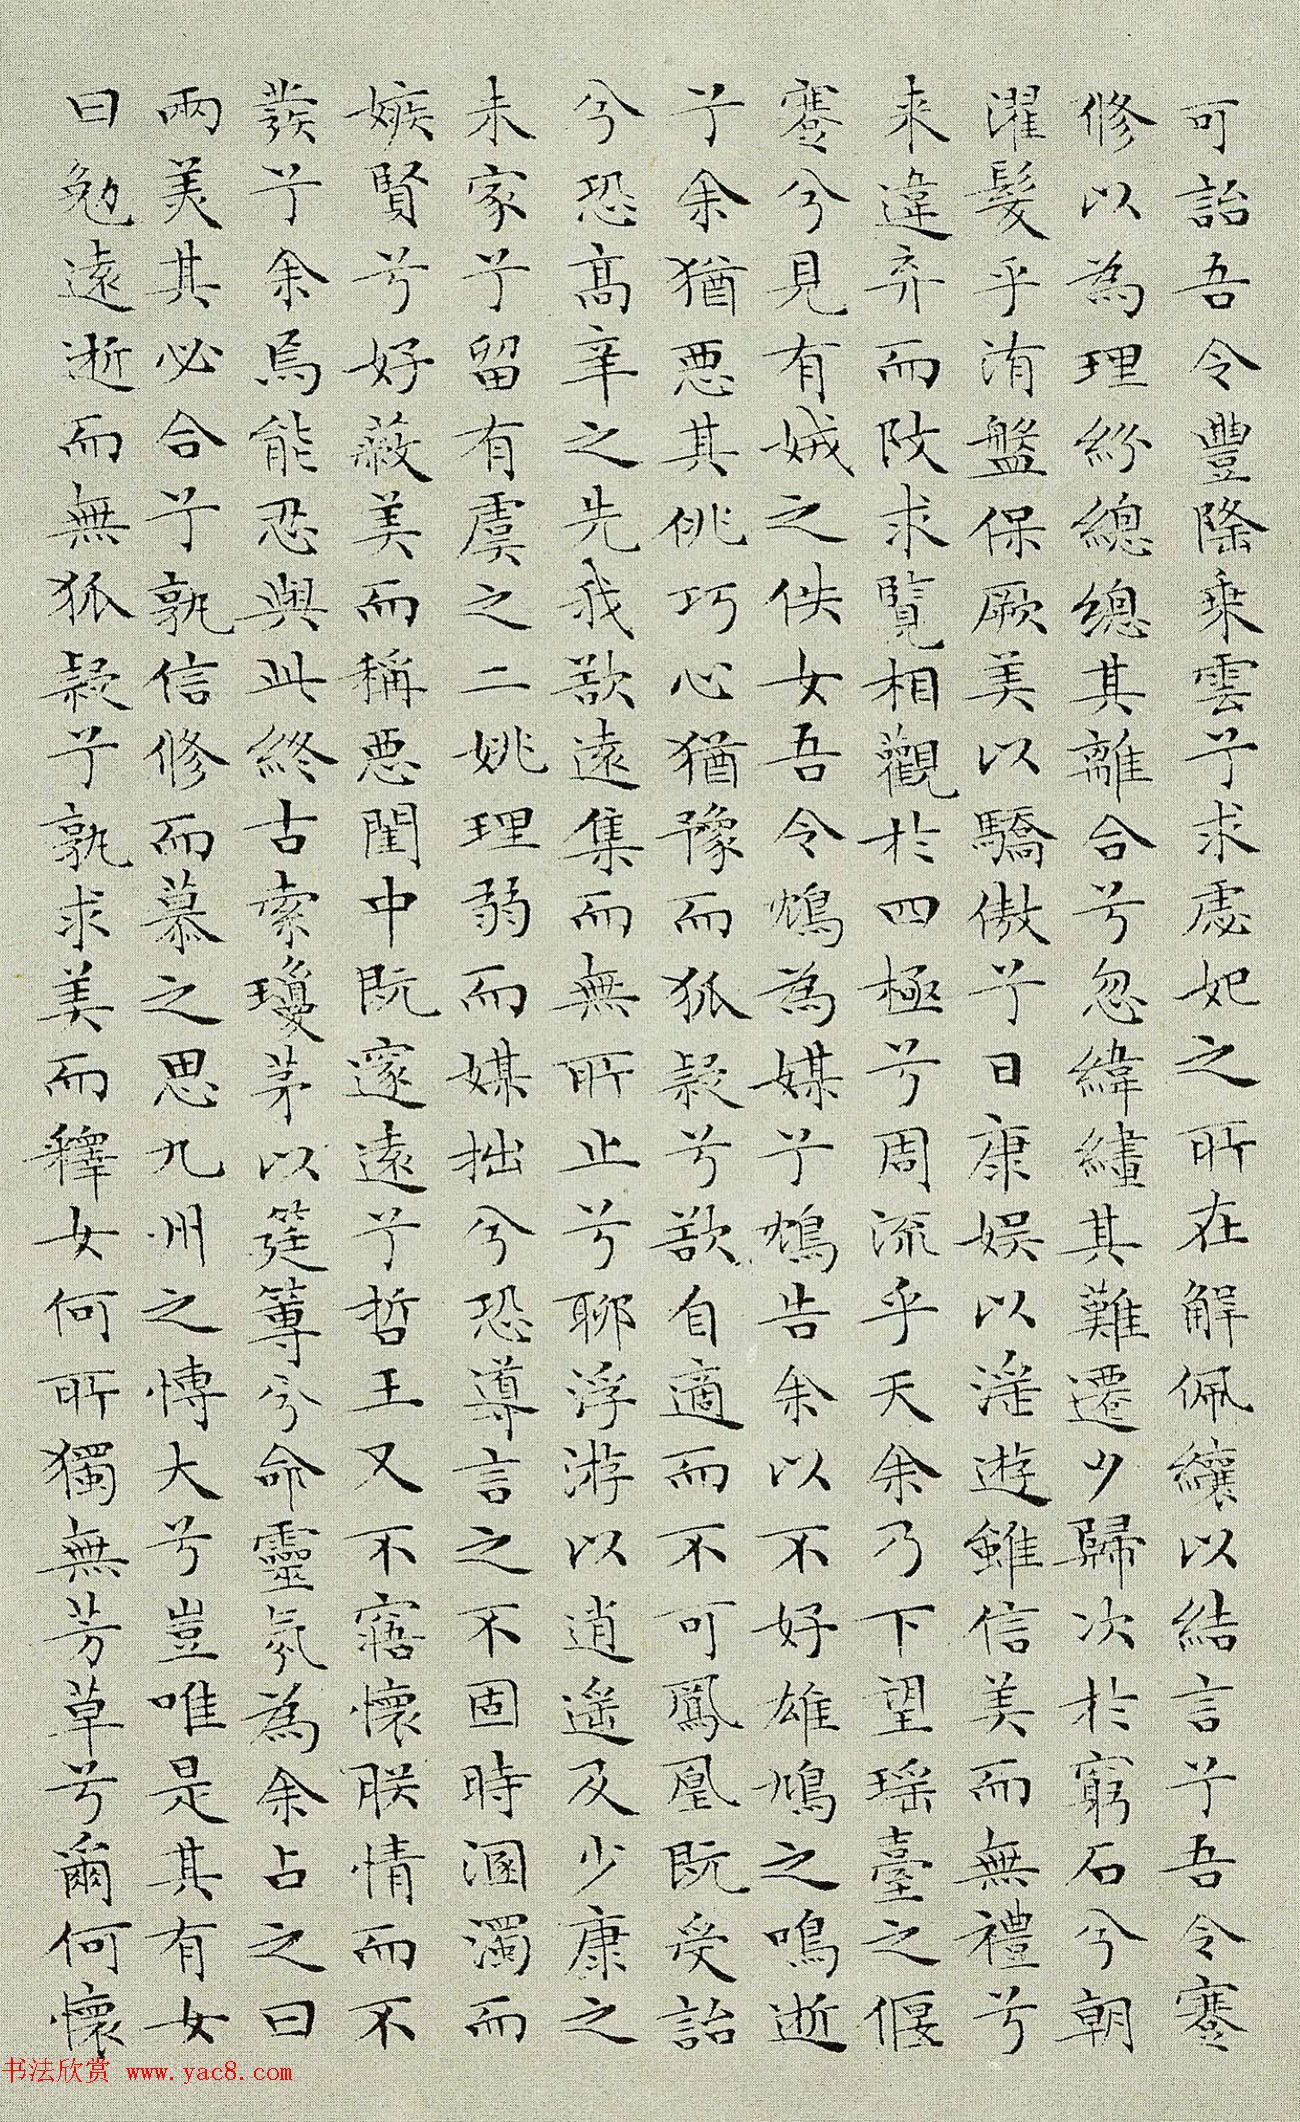 可詒吾令豐隆乘雲兮求處妃之所在解佩纕以結言兮吾令蹇
修以為理紛總總其離合兮忽緯繣其難遷夕歸次於窮石兮朝
濯髮乎洧盤保厥美以驕傲兮日康娱以淫遊雖信美而無禮兮
来違弃而改求覽相觀於四極兮周流乎天余乃下望瑶臺之偃
蹇兮見有娀之佚女吾令鴆為媒兮鴆告余以不好雄鳩之鳴逝
兮余猶惡其佻巧心猶豫而狐疑兮欲自適而不可鳳凰既受詒
兮恐高辛之先我欲遠集而無所止兮聊浮游以逍遥及少康之
未家兮留有虞之二姚理弱而媒拙兮恐導言之不固時溷濁而
嫉賢兮好蔽美而稱惡閨中既邃遠兮哲王又不寤懷朕情而不
發兮余焉能忍與此終古索瓊茅以筳篿兮命靈氛為余占之曰
兩美其必合兮孰信修而慕之思九州之博大兮豈唯是其有女
曰勉遠逝而無狐疑兮孰求美而釋女何所獨無芳草兮爾何懷
书法欣赏 www.yac8.com